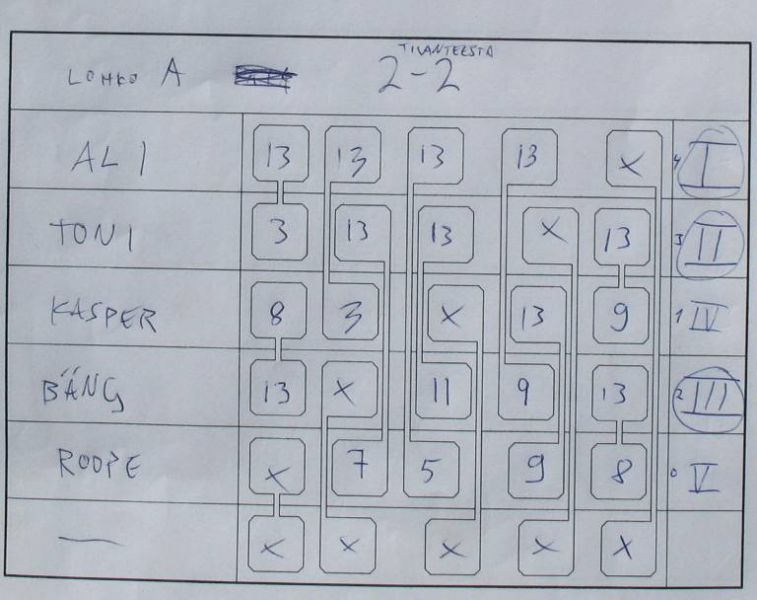 LOHKO A TILANTEESTA 2-2
ALI 13 13 13 13 X 4 I
TONI 3 13 13 X 13 3 II
KASPER 8 3 X 13 9 1 IV
BÄNG 13 X 11 9 13 2 III
ROOPE X 7 5 9 8 0 V
— X X X X X